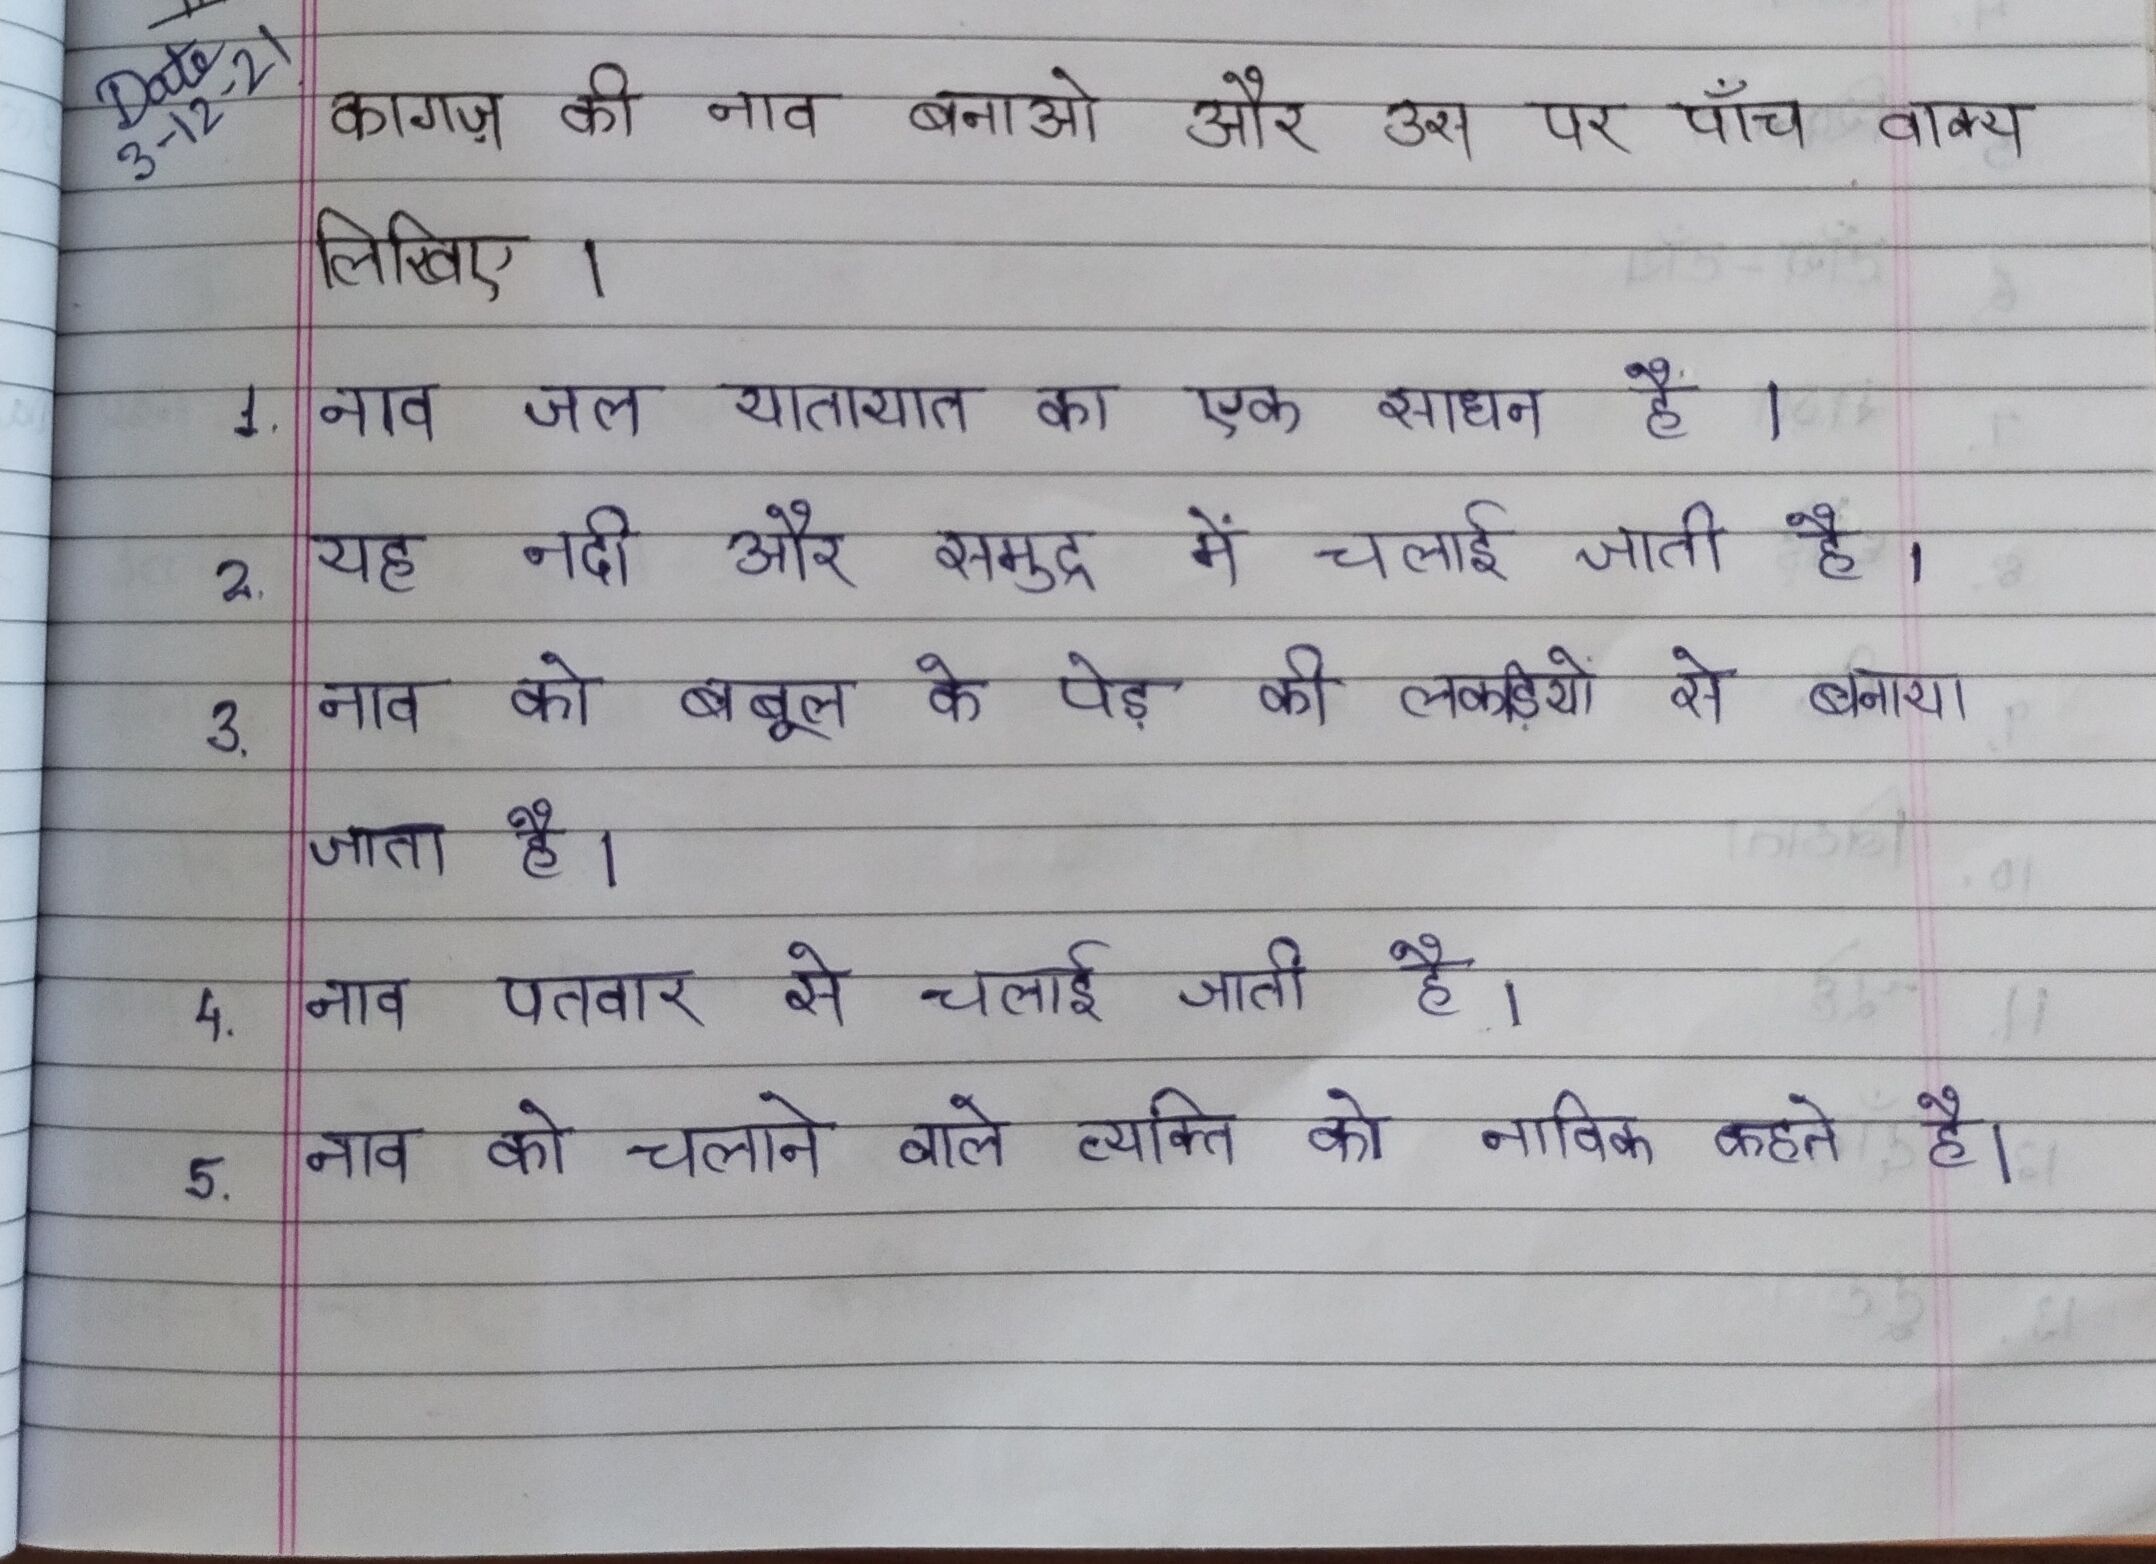 Date
3-12-21
कागज़ की नाव बनाओ और उस पर पाँच वाक्य
लिखिए ।
1. नाव जल यातायात का एक साधन हैं ।
2. यह नदी और समुद्र में चलाई जाती है ।
3. नाव को बबूल के पेड़ की लकड़ियों से बनाया
जाता है ।
4. नाव पतवार से चलाई जाती है ।
5. नाव को चलाने वाले व्यक्ति को नाविक कहते है ।